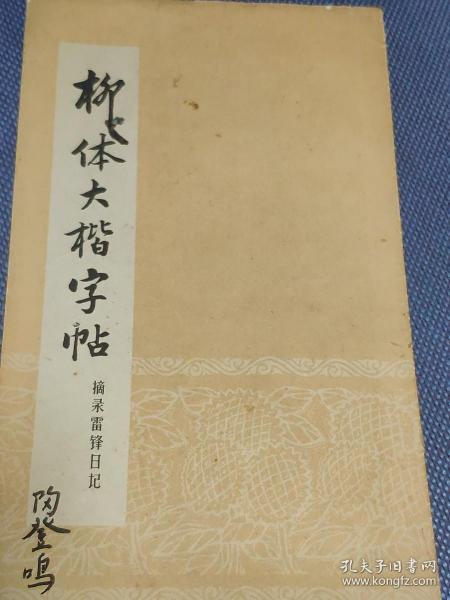 柳体大楷字帖
摘录雷锋日记
陶登鸣
孔夫子旧书网
www.kongfz.com